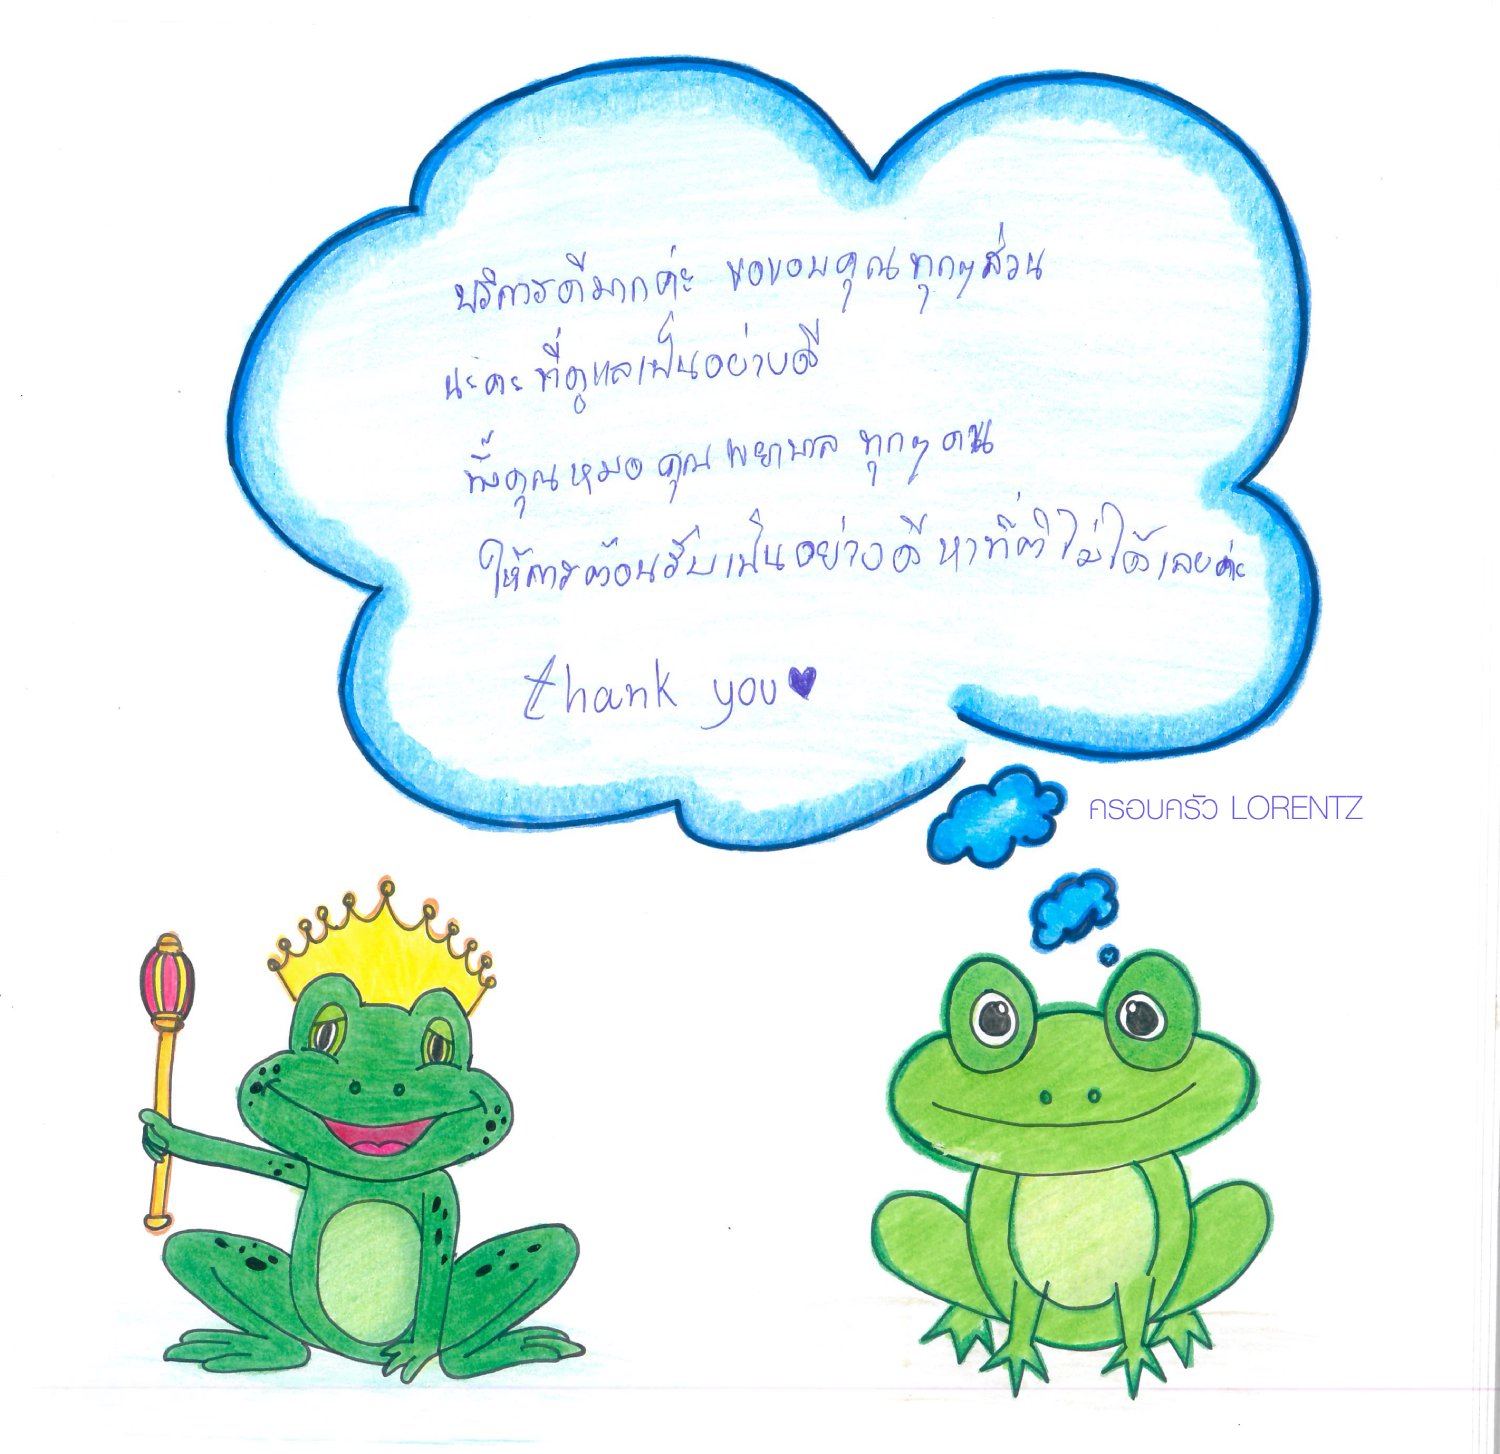 บริการดีมากค่ะ ขอขอบคุณทุกๆส่วน
นะคะ ที่ดูแลเป็นอย่างดี
ทั้งคุณหมอ คุณพยาบาล ทุกๆคน
ให้การต้อนรับเป็นอย่างดี หาที่ติไม่ได้เลยค่ะ
thank you♥
ครอบครัว LORENTZ